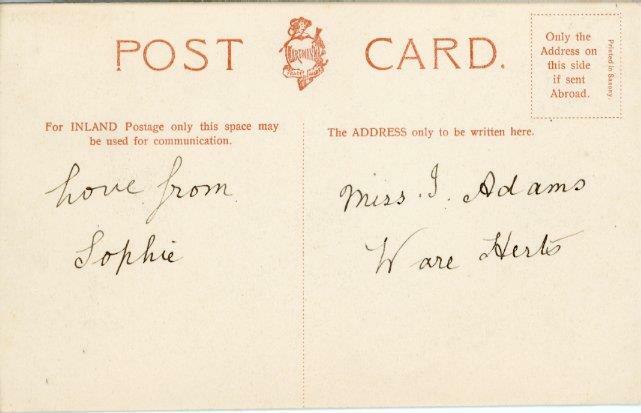 POST CARD.
Only the
Address on
this side
if sent
Abroad.
Printed in Saxony.
For INLAND Postage only this space may
be used for communication.
The ADDRESS only to be written here.
Love from
Sophie
Miss. I. Adams
Ware Herts